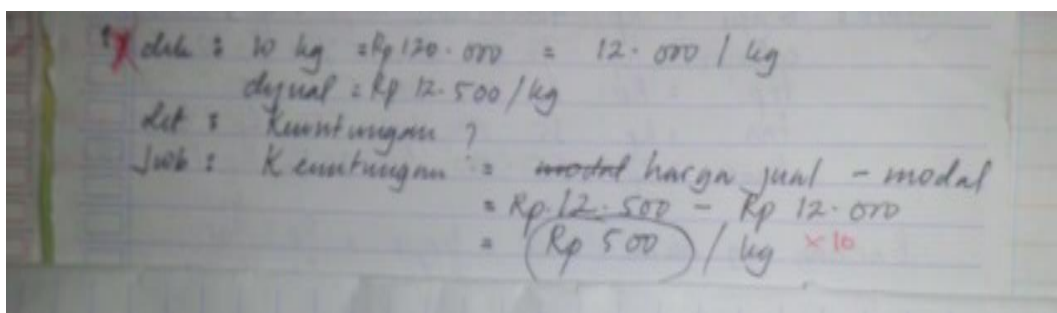 1 dik : 10 kg = Rp 120.000 = 12.000 / kg
dijual = Rp 12.500 / kg
dit : Keuntungan ?
Jwb : Keuntungan = modal harga jual - modal
= Rp. 12.500 - Rp 12.000
= Rp 500 / kg × 10